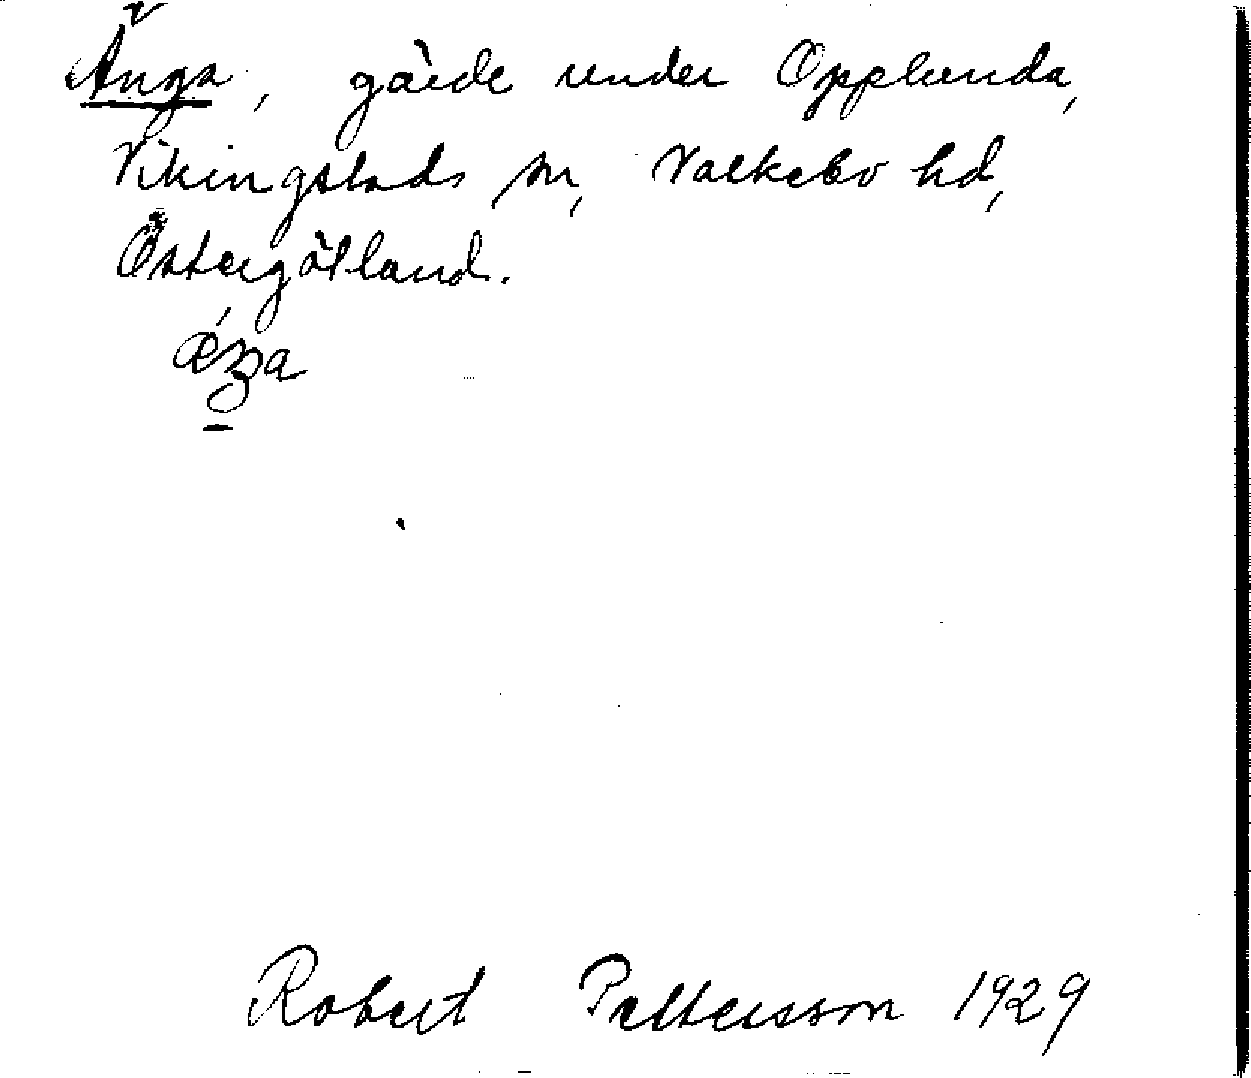 Änga, gärde under Opplunda,
Vikingstads sn, Valkebo hd,
Östergötland.
ǽŋa
Robert Pettersson 1929